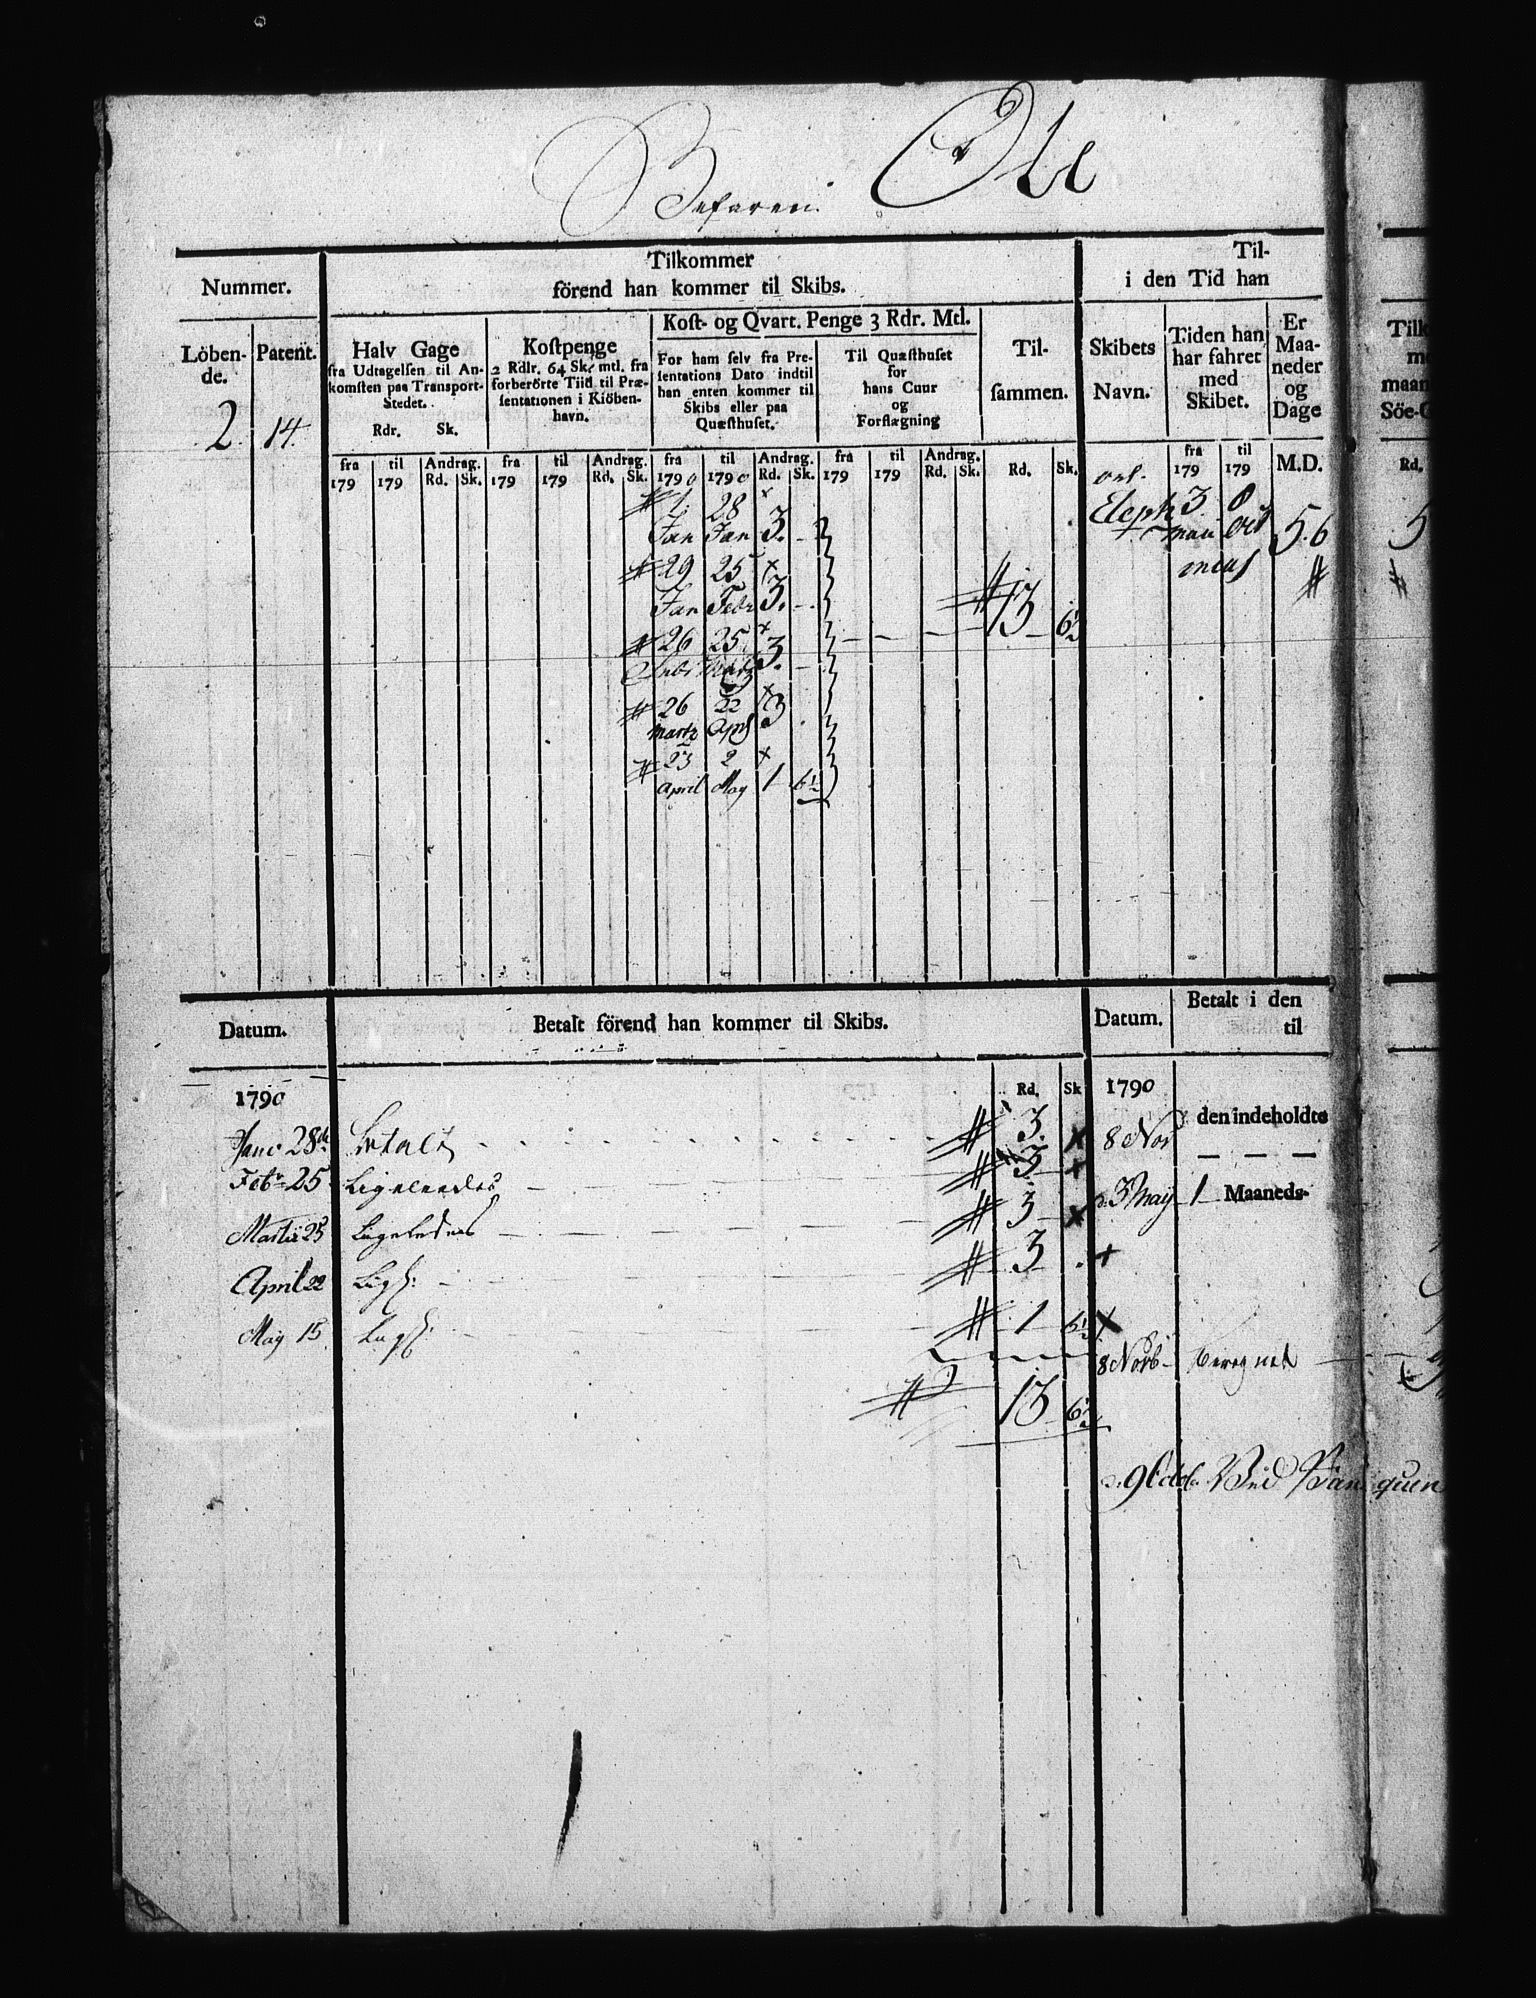 Befaren Ole
Nummer.
Tilkommer
förend han kommer til Skibs.
Til-
i den Tid han
Löben-
de.
Patent.
Halv Gage
fra Udtagelsen til An-
komsten paa Transport-
Stedet.
Rdr. Sk.
Kostpenge
2 Rdlr. 64 Sk. mtl. fra
forberörte Tiid til Præ-
sentationen i Kiöben-
havn.
Kost- og Qvart. Penge 3 Rdr. Mtl.
For ham selv fra Pre-
sentations Dato indtil
han enten kommer til
Skibs eller paa
Quæsthuset.
Til Quæsthuset
for
hans Cuur
og
Forflægning
Til-
sammen.
Skibets
Navn.
Tiden han
har fahret
med
Skibet.
Er
Maa-
neder
og
Dage
2. 14.
fra 179 til 179 Andrag. Rd. Sk.
fra 179 til 179 Andrag. Rd. Sk.
fra 1790 til 1790 Andrag. Rd. Sk.
fra 179 til 179 Andrag. Rd. Sk.
Rd. Sk.
fra 179 til 179
M.D.
1 Jan 28 Jan 3. -
29 Jan 25 Febr 3. -
26 Febr 25 Marti 3. -
26 Marti 22 Apr 3 .
23 April 2 May 1 6½
13 6½
Eleph 3 8
Oct 5.6
Datum.
Betalt förend han kommer til Skibs.
Datum.
Betalt i den
til
1790
Rd. Sk
1790
den indeholdte
Janv 28de Betalt 3.
8 Nov
Febr 25 Ligeleedes 3
d. 3 May 1 Maaneds-
Martii 25 Ligeledes 3
April 22 Ligs: 3
May 15 Ligs: 1 6½
8 Novb Beregnet
13 6½
Ved Banquen
Tilk
maan
Söe-G
Rd.
5